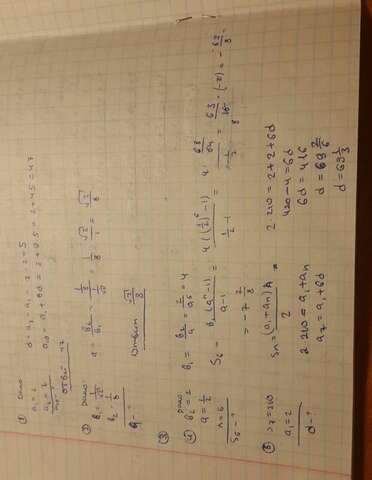 ① Дано
a₁ = 2
a₂ = 7
a₁₀ - ?
d = a₂ - a₁ = 7 - 2 = 5
a₁₀ = a₁ + 9d = 2 + 9·5 = 2 + 45 = 47
Ответ 47
② Дано
b₂ = 1/8
q = b₂/b₁ = 1/8 · √2/1 = √2/8
Ответ √2/8
③
④ Дано
b₂ = 2
q = 1/2
n = 6
S₆ - ?
b₁ = b₂/q = 4
S₆ = b₁(qⁿ - 1)/(q - 1) = 4((1/2)⁶ - 1)/(1/2 - 1) =
= 63/16 · (-2) = -63/8
= -7 7/8
S₇ = 210
a₁ = 2
d - ?
Sₙ = (a₁ + aₙ)/2
2·210 = a₁ + aₙ
a₇ = a₁ + 6d
2·210 = 2 + 2 + 6d
420 - 4 = 6d
6d = 416
d = 69 2/6
d = 69 1/3